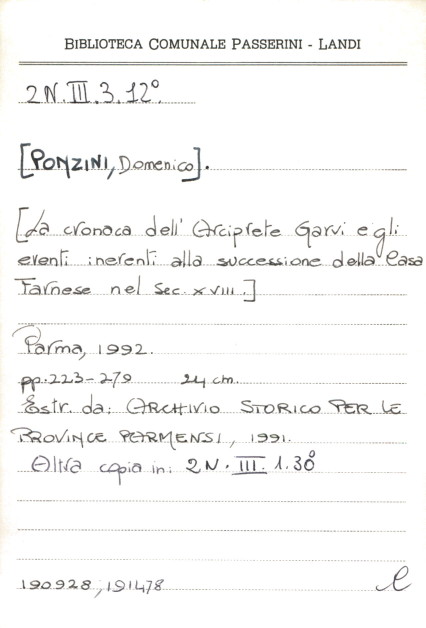 BIBLIOTECA COMUNALE PASSERINI - LANDI
2N.III.3.12°
[PONZINI, Domenico].
[La cronaca dell' Arciprete Garvi e gli
eventi inerenti alla successione della Casa
Farnese nel Sec. XVIII.]
Parma, 1992.
pp. 223-279 24 cm.
Estr. da: ARCHIVIO STORICO PER LE
PROVINCE PARMENSI, 1991.
Altra copia in: 2N.III.1.38°
190928, 191478